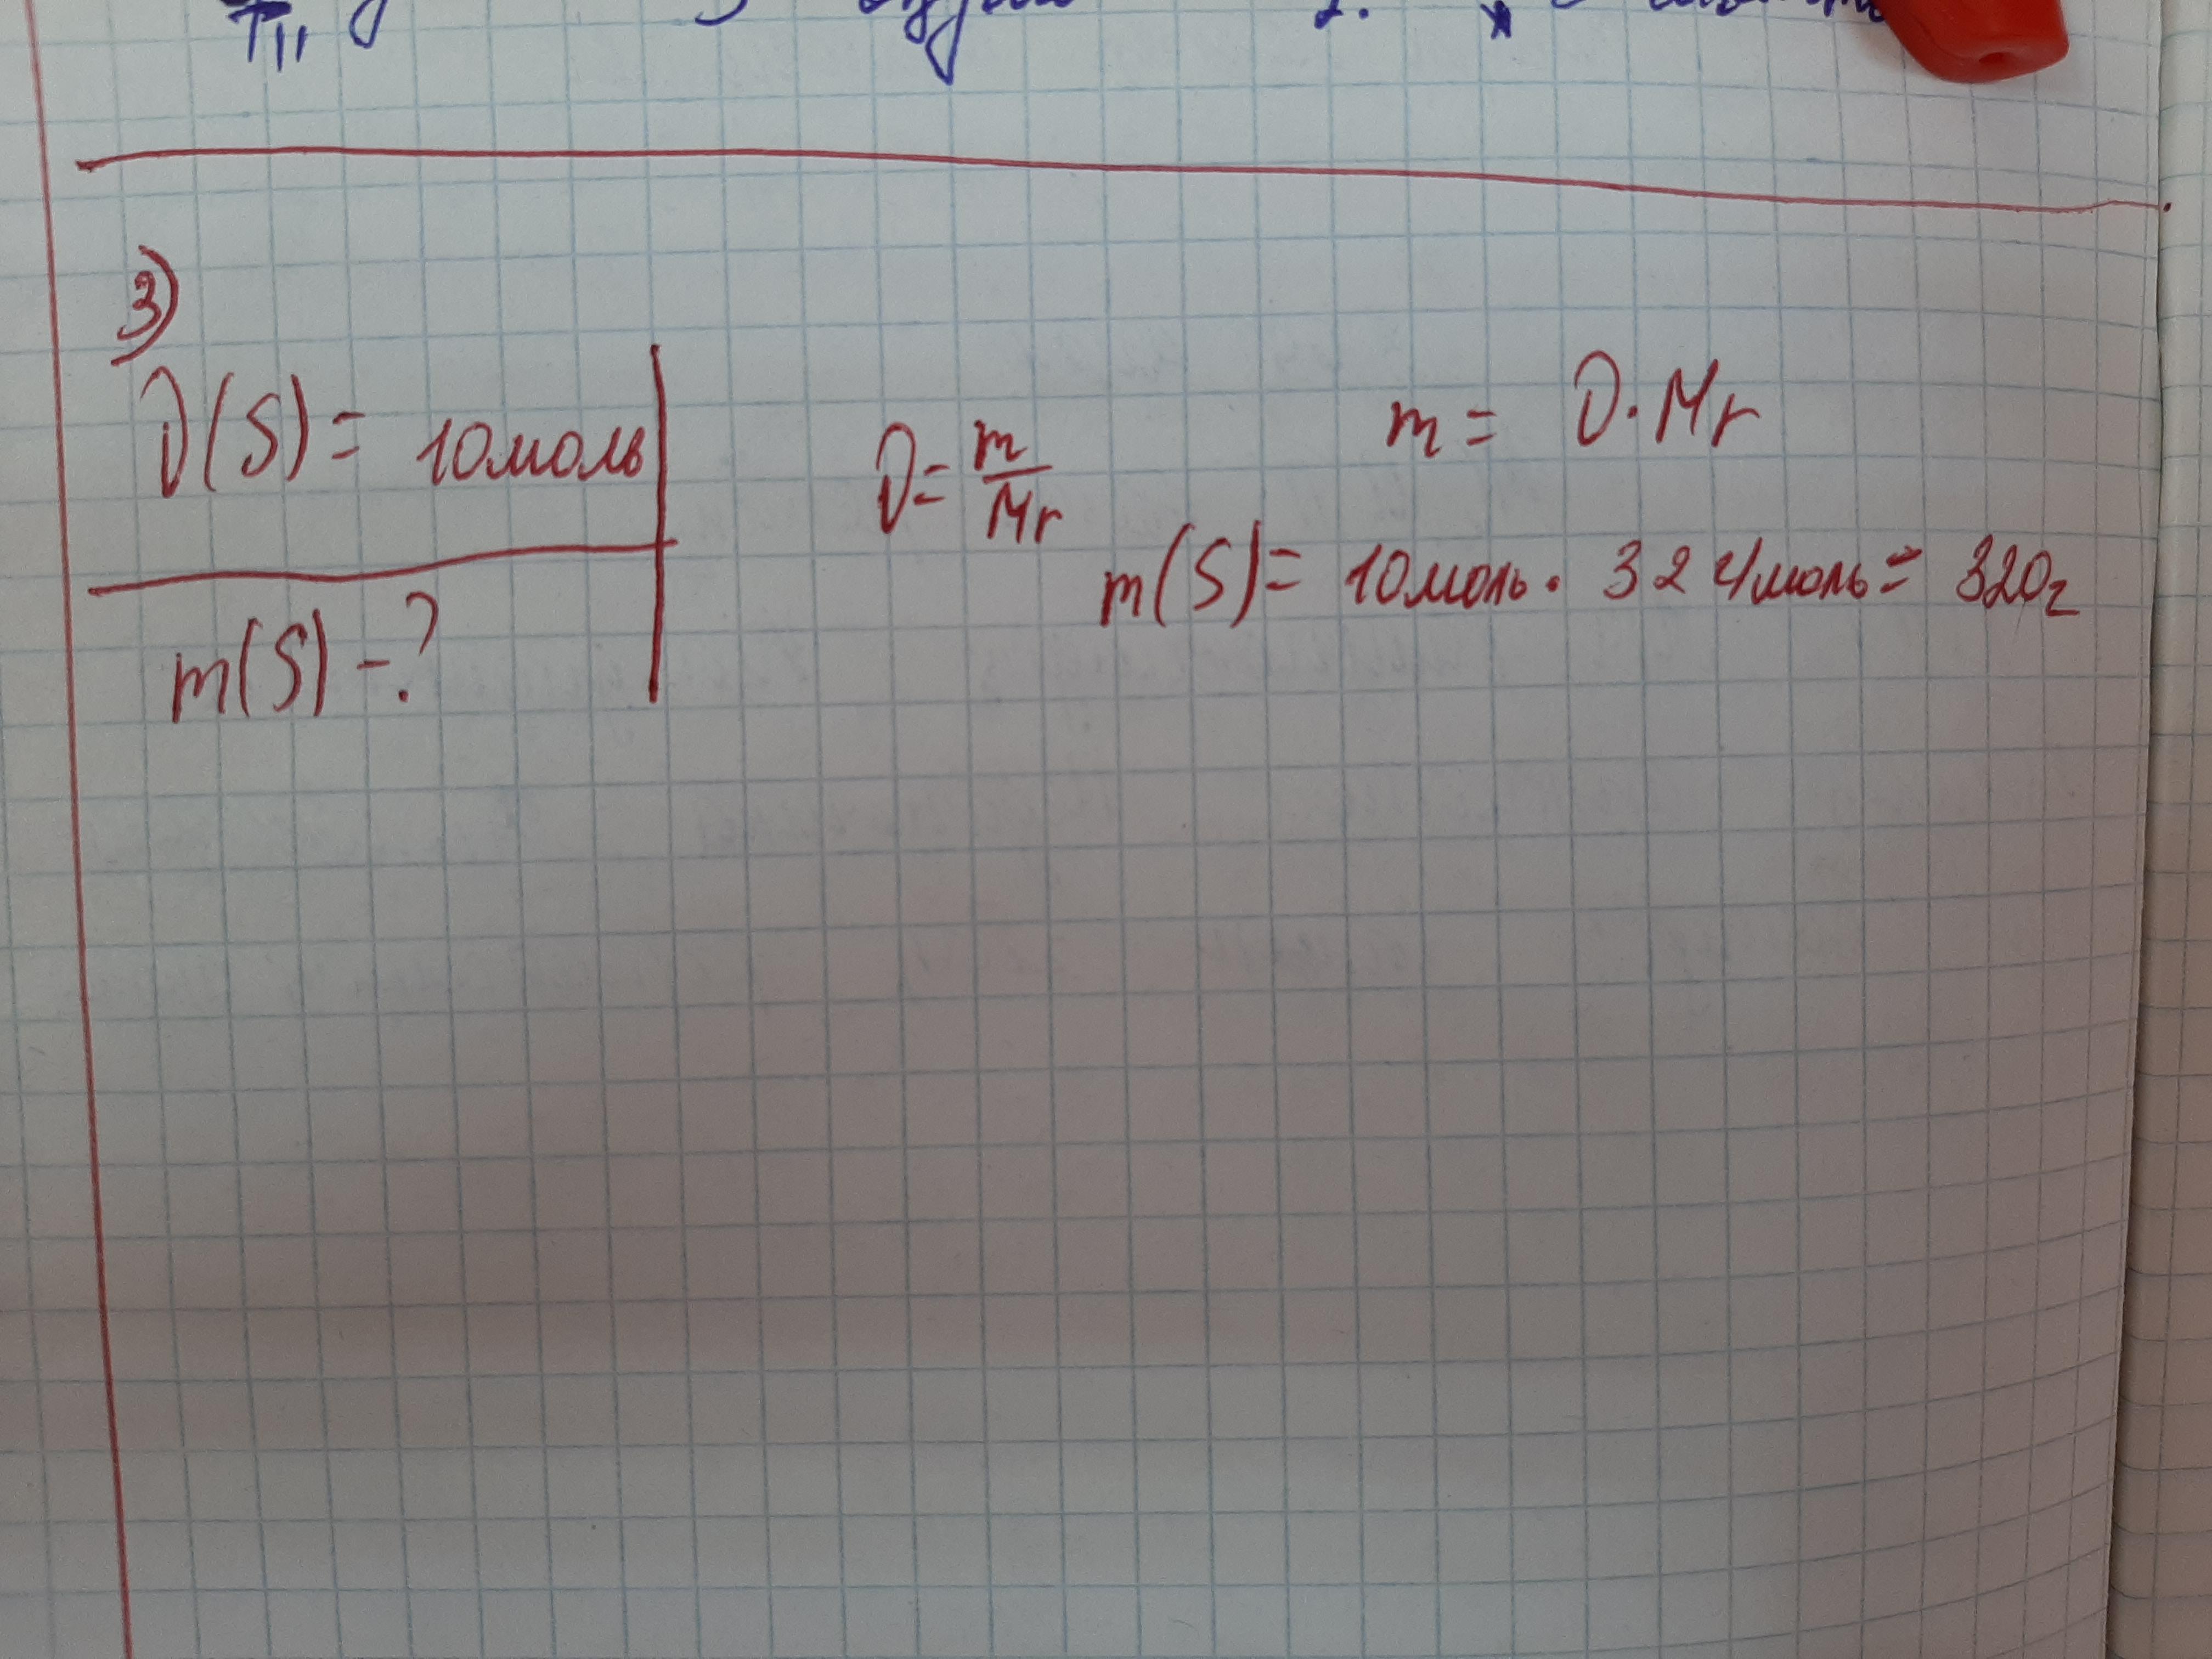 3)
ν(S) = 10моль
m(S) - ?
ν = m/Mr
m = ν · Mr
m(S) = 10моль · 32 г/моль = 320г